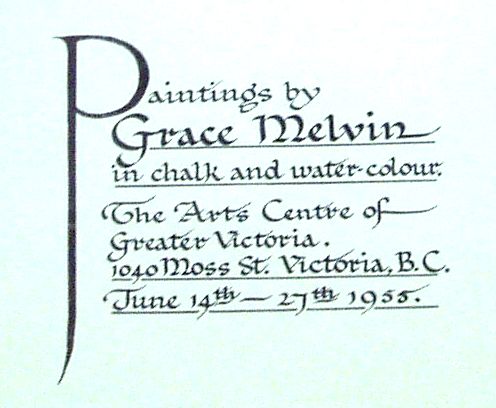 Paintings by
Grace Melvin
in chalk and water-colour.
The Arts Centre of
Greater Victoria.
1040 Moss St. Victoria, B.C.
June 14th — 27th 1955.